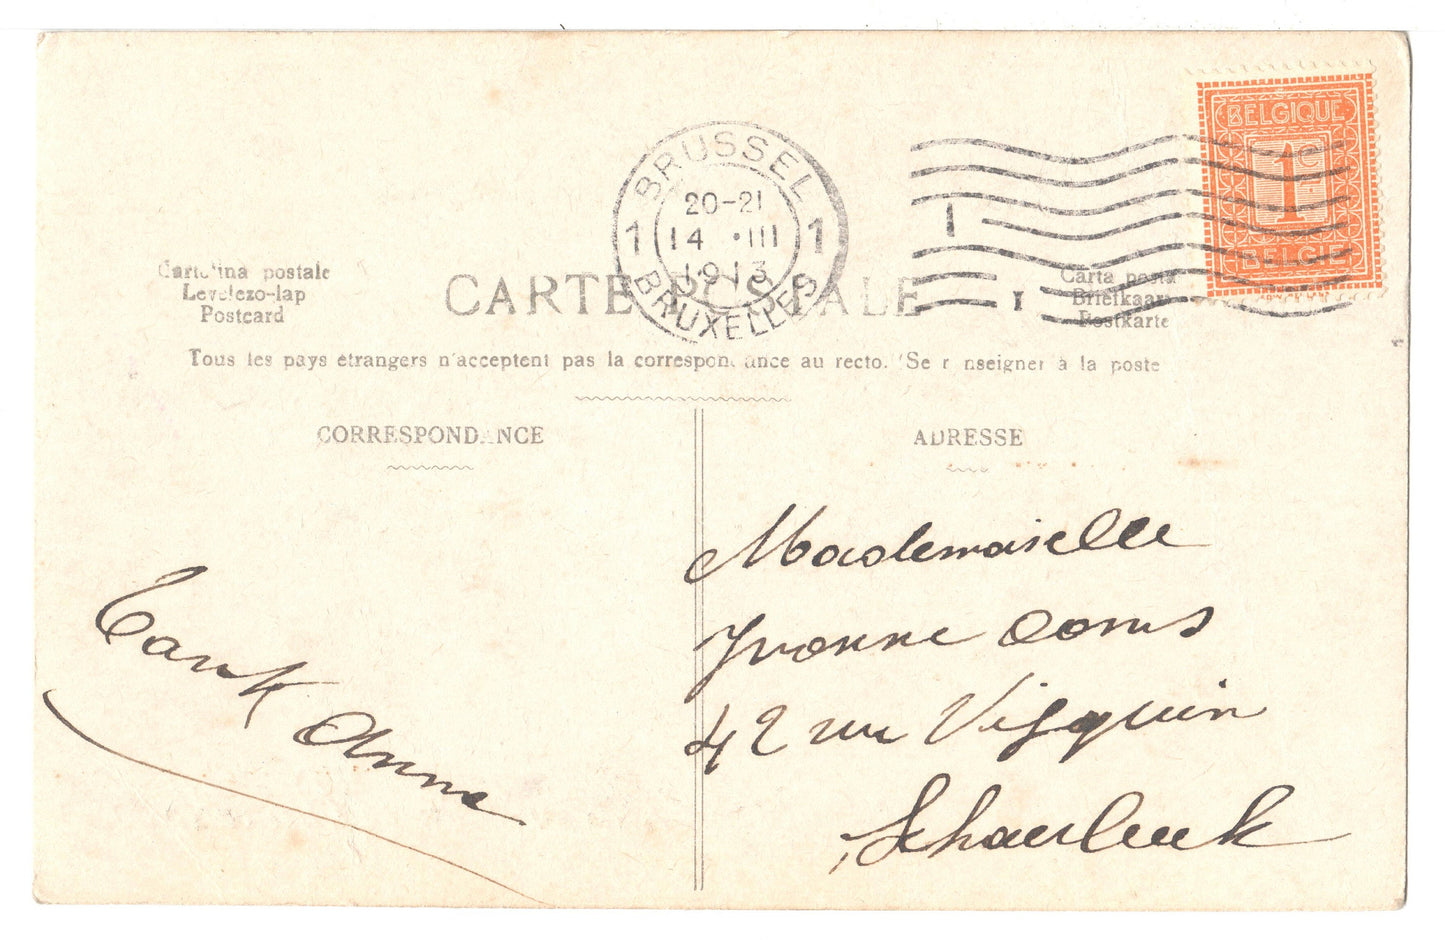 BELGIQUE
1 Cᵐ
BELGIË
BRUSSEL
20-21
1 14 · III 1
1913
BRUXELLES
1
1
Cartolina postale
Levelezo-lap
Postcard
CARTE POSTALE
Carta posta
Briefkaar
Postkarte
Tous les pays étrangers n'acceptent pas la correspondance au recto. (Se renseigner à la poste
CORRESPONDANCE
ADRESSE
Mademoiselle
Yvonne
42 rue Vifquin
Schaerbeek
Anna